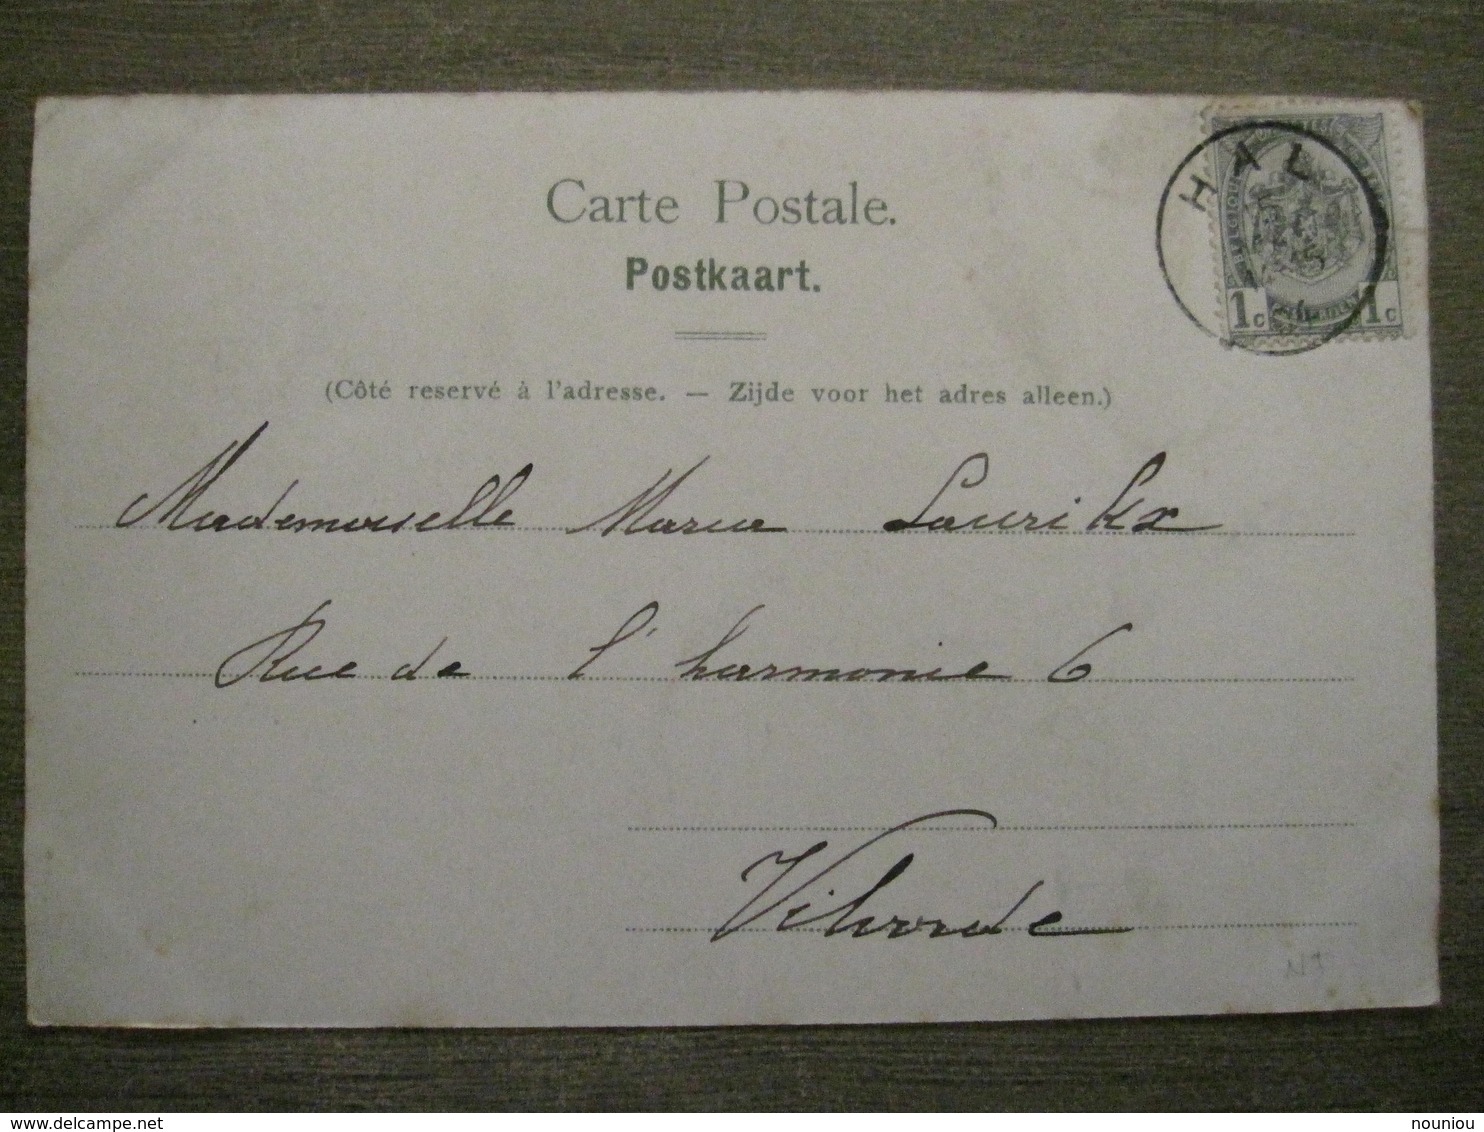 Carte Postale.
Postkaart.
(Côté reservé à l'adresse. — Zijde voor het adres alleen.)
HAL
BELGIQUE
1c 1c
Mademoiselle Maria Laurikx
Rue de l'harmonie 6
Vilvorde
delcampe.net
nouniou